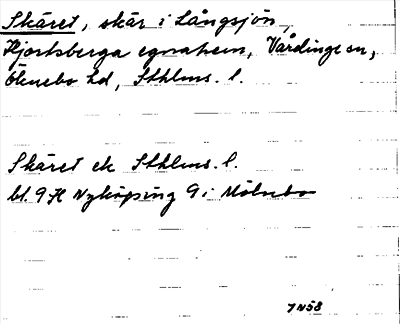 Skäret, skär i Långsjön,
Hjortsberga egnahem, Vårdinge sn,
Öknebo hd, Sthlms. l.
Skäret ek Sthlms. l.
bl. 9 H Nyköping 9 i Mölnbo
7 N 58